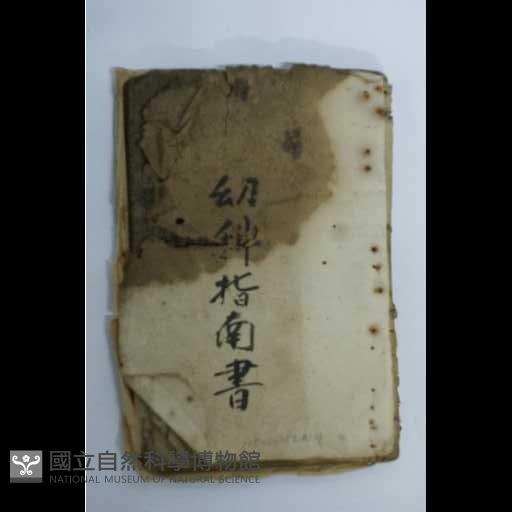 幼科指南書
國立自然科學博物館
NATIONAL MUSEUM OF NATURAL SCIENCE